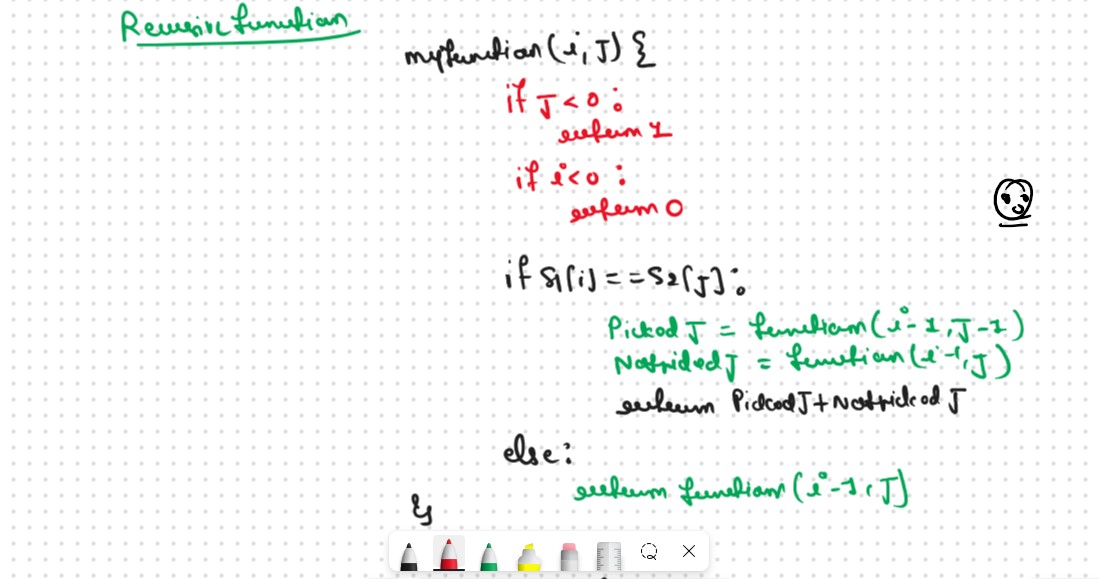 Recursive function
myfunction(i, J) {
if J < 0 :
return 1
if i < 0 :
return 0
if S1[i] == S2[J] :
Picked J = function(i-1, J-1)
Notpicked J = function(i-1, J)
return Picked J + Notpicked J
else :
return function(i-1, J)
}